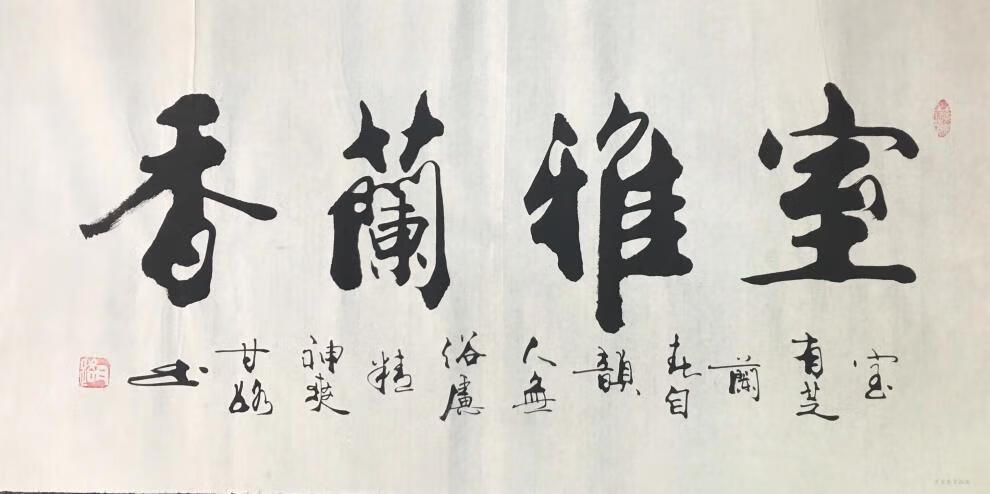 室雅蘭香
室有芝蘭春自韻人無俗慮精神爽甘书